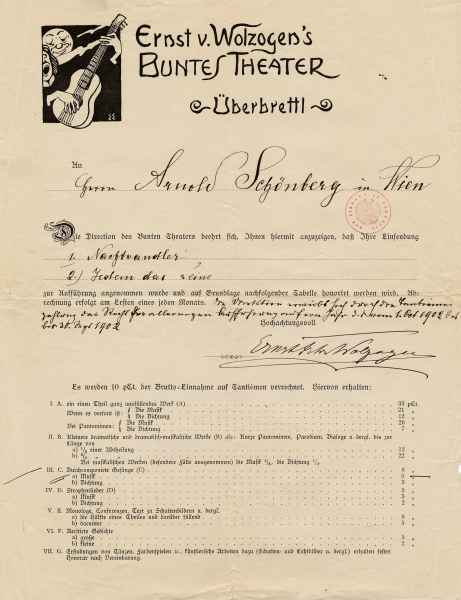 Ernst v. Wolzogen's
BUNTES THEATER
Überbrettl
An
Herrn Arnold Schönberg in Wien
Die Direction des Bunten Theaters beehrt sich, Ihnen hiermit anzuzeigen, daß Ihre Einsendung
1. Nachtwandler
2.) Jedem das seine
zur Aufführung angenommen wurde und auf Grundlage nachfolgender Tabelle honorirt werden wird. Ab-
rechnung erfolgt am Ersten eines jeden Monats. Die Direktion erwirbt sich durch die Tantiemen
zahlung das Recht der alleinigen Aufführung auf ein Jahr d. i. vom 1.
bis 30. Sept 1902
Hochachtungsvoll
Ernst Frh. v. Wolzogen
Es werden 10 pCt. der Brutto-Einnahme an Tantièmen verrechnet. Hiervon erhalten:
I. A. ein einen Theil ganz ausfüllendes Werk (A) 33 pCt.
Wenn es vertont ist: { Die Musik 21 "
{ Die Dichtung 12 "
Bei Pantomimen: { Die Musik 26 "
{ Die Dichtung 7 "
II. B. Kleinere dramatische und dramatisch-musikalische Werke (B) als: Kurze Pantomimen, Parodieen, Dialoge u. dergl. bis zur
Länge von
a) 1/3 einer Abtheilung 12 "
b) 22 "
Bei musikalischen Werken (besondere Fälle ausgenommen) die Musik die Dichtung
III. C. Durchcomponirte Gesänge (C) 8 "
a) Musik
b) Dichtung
IV. D. Strophenlieder (D)
a) Musik
b) Dichtung 2 "
V. E. Monologe, Conferenzen, Text zu Schattenbildern u. dergl.
a) die Hälfte eines Theiles und darüber füllend
b) darunter
VI. F. Recitirte Gedichte
a) große
b) kleine 2 "
VII. G. Erfindungen von Tänzen, Farbenspielen u. künstlerische Arbeiten dazu (Schatten- und Lichtbilder u. dergl.) erhalten festes
Honorar nach Vereinbarung.